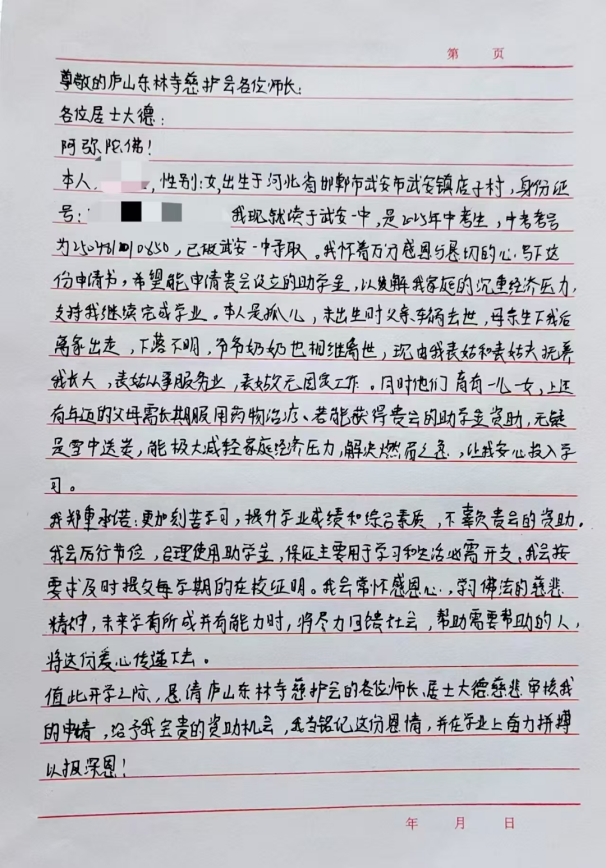 第 页
尊敬的庐山东林寺慈护会各位师长:
各位居士大德:
阿弥陀佛!
本人 ,性别:女,出生于河北省邯郸市武安市武安镇店子村,身份证
号: 我现就读于武安一中,是2025年中考生,中考考号
为 ,已被武安一中录取。我怀着万分感恩与恳切的心写下这
份申请书,希望能申请贵会设立的助学金,以缓解我家庭的沉重经济压力,
支持我继续完成学业。本人是孤儿,未出生时父亲车祸去世,母亲生下我后
离家出走,下落不明,爷爷奶奶也相继离世,现由我表姑和表姑夫抚养
我长大,表姑从事服务业,表姑父无固定工作。同时他们育有一儿一女,上还
有年迈的父母需长期服用药物治疗、若能获得贵会的助学金资助,无疑
是雪中送炭,能极大减轻家庭经济压力,解决燃眉之急,让我安心投入学
习。
我郑重承诺:更加刻苦学习,提升学业成绩和综合素质,不辜负贵会的资助。
我会厉行节俭,合理使用助学金,保证主要用于学习和生活必需开支;我会按
要求及时提交每学期的在校证明。我会常怀感恩心,学习佛法的慈悲
精神,未来学有所成并有能力时,将尽力回馈社会,帮助需要帮助的人,
将这份爱心传递下去。
值此开学之际,恳请庐山东林寺慈护会的各位师长、居士大德慈悲审核我
的申请,给予我宝贵的资助机会,我当铭记这份恩情,并在学业上奋力拼搏
以报深恩!
年 月 日